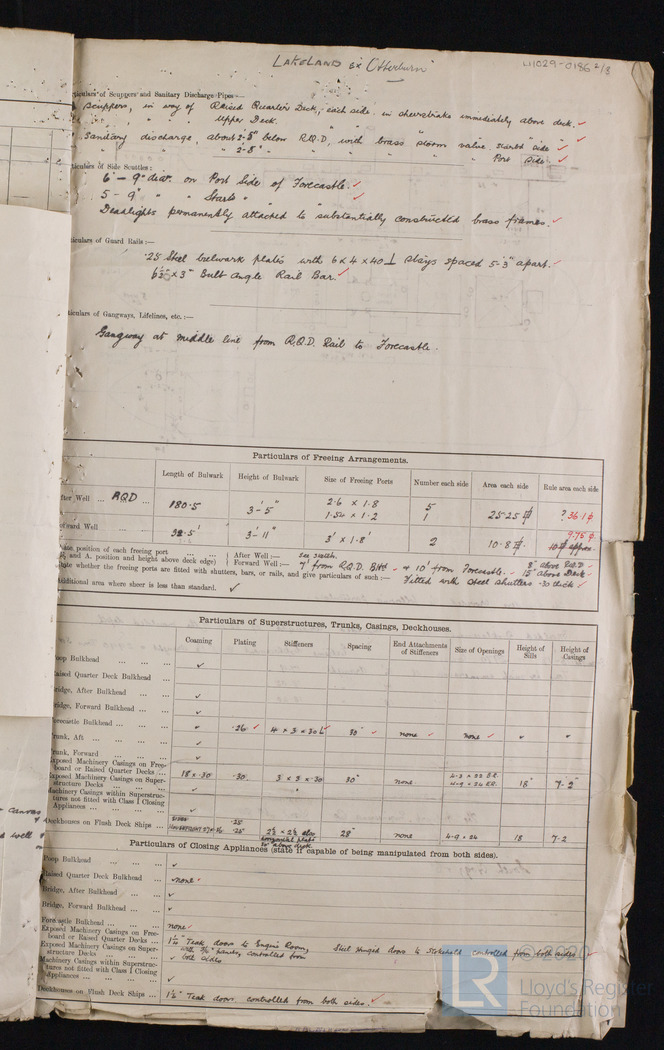 LAKELAND ex Otterburn
L11029-0186 2/3
ticulars of Scuppers and Sanitary Discharge Pipes—
Scuppers, in way of Raised Quarter Deck, each side in sheerstrake immediately above deck.
" " " " Upper Deck. " " " " "
Sanitary discharge, about 2'-5" below R.Q.D, with brass storm valve, starbd side
" " " 2'-8" " " " " " Port Side
ticulars of Side Scuttles:
6 - 9" diar. on Port Side of Forecastle.
5 - 9" " " Starb " "
Deadlights permanently attached to substantially constructed brass frames.
ticulars of Guard Rails:—
.25 Steel bulwark plates with 6 x 4 x .40 ⊥ stays spaced 5'-3" apart.
6½" x 3" Bulb Angle Rail Bar.
ticulars of Gangways, Lifelines, etc.:—
Gangway at middle line from R.Q.D. Rail to Forecastle.
Particulars of Freeing Arrangements.
Length of Bulwark Height of Bulwark Size of Freeing Ports Number each side Area each side Rule area each side
After Well ... RQD ... 180.5 3'-5" 2.6 x 1.8 5
1.54 x 1.2 1 25.25 36.1
orward Well 32.5' 3'-11" 3' x 1.8' 2 10.8 9.75
10 approx.
tate position of each freeing port ... ... } After Well:— see sketch. 8" above RQD
F. and A. position and height above deck edge) } Forward Well:— 7' from R.Q.D. Bhd - & 10' from Forecastle. - 15" above Deck
tate whether the freeing ports are fitted with shutters, bars, or rails, and give particulars of such:— Fitted with steel shutters .30 thick
dditional area where sheer is less than standard.
Particulars of Superstructures, Trunks, Casings, Deckhouses.
Coaming Plating Stiffeners Spacing End Attachments of Stiffeners Size of Openings Height of Sills Height of Casings
oop Bulkhead ... ... ...
aised Quarter Deck Bulkhead ...
ridge, After Bulkhead ... ...
ridge, Forward Bulkhead ... ...
orecastle Bulkhead ... ... ... .26 4 x 3 x .30 30" none none
runk, Aft ... ... ... ...
runk, Forward ... ... ...
xposed Machinery Casings on Free-
board or Raised Quarter Decks ... 18 x .30 .30 3 x 3 x .30 30" none 18" 7-2"
xposed Machinery Casings on Super-
structure Decks ... ... ...
achinery Casings within Superstruc-
tures not fitted with Class I Closing
Appliances ... ... ... ...
eckhouses on Flush Deck Ships ... .25
.25 28" none 4-9 x 24 18 7-2
horizontal plate
above deck
Particulars of Closing Appliances (state if capable of being manipulated from both sides).
Poop Bulkhead ... ... ...
aised Quarter Deck Bulkhead ... none
ridge, After Bulkhead ... ...
ridge, Forward Bulkhead ... ...
Forecastle Bulkhead ... ... ... none
Exposed Machinery Casings on Free-
board or Raised Quarter Decks ... Teak doors to Engine Room, Steel hinged doors to stokehold controlled from both sides
Exposed Machinery Casings on Super-
structure Decks ... ... ... controlled from
both sides
Machinery Casings within Superstruc-
tures not fitted with Class I Closing
Appliances ... ... ... ...
Deckhouses on Flush Deck Ships ... 1½" Teak doors controlled from both sides.
canvas
well
© 2020
LR
Lloyd's Register
Foundation